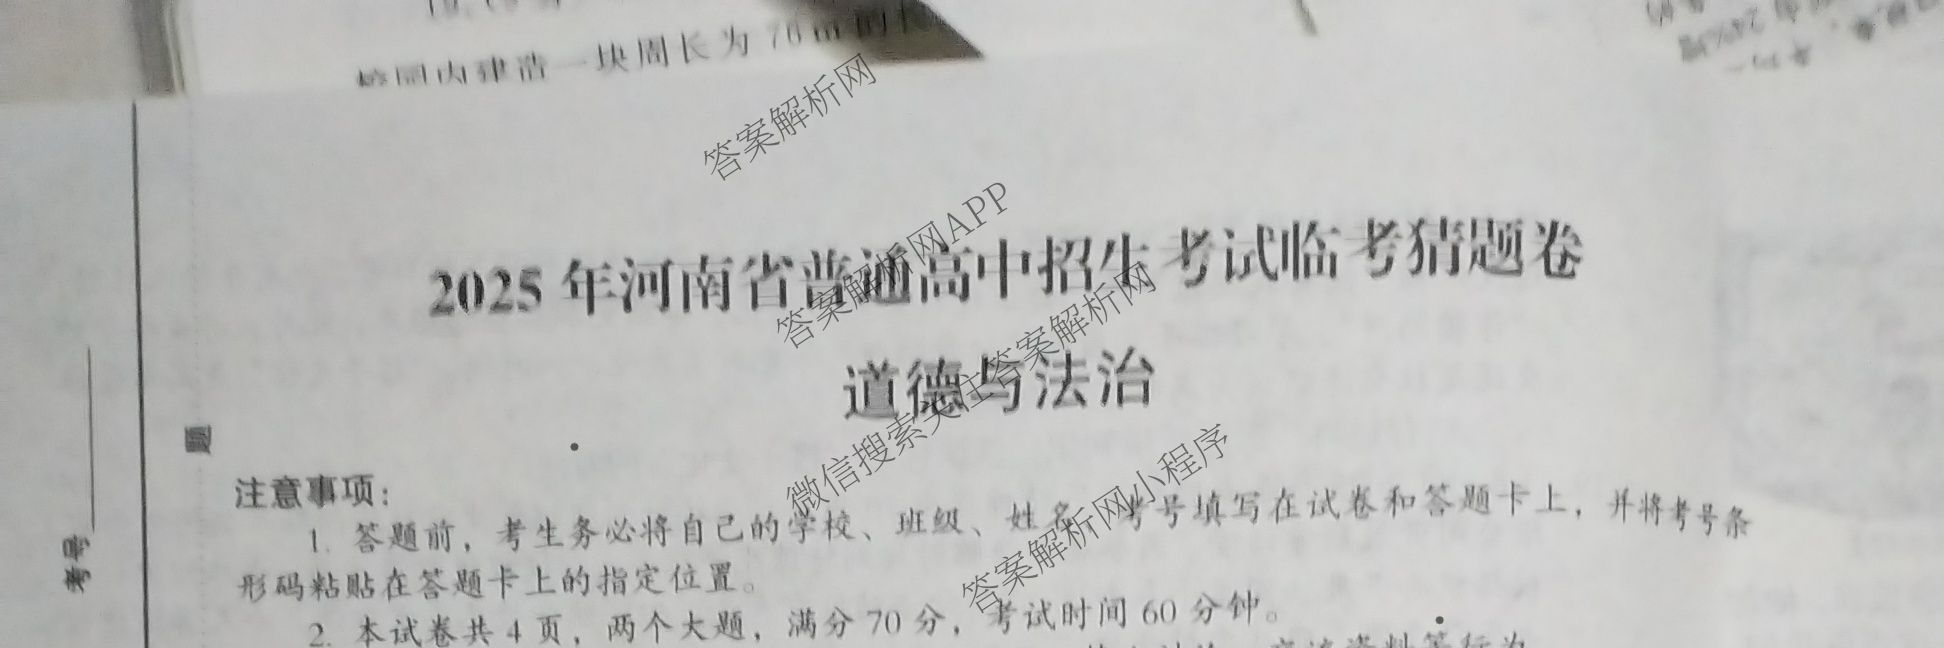 校园内建造一块周长为70m的
答案解析网
答案解析网APP
2025年河南省普通高中招生考试临考猜题卷
道德与法治
微信搜索关注答案解析网
答案解析网小程序
题
考号
注意事项：
1. 答题前，考生务必将自己的学校、班级、姓名、考号填写在试卷和答题卡上，并将考号条
形码粘贴在答题卡上的指定位置。
2. 本试卷共4页，两个大题，满分70分，考试时间60分钟。